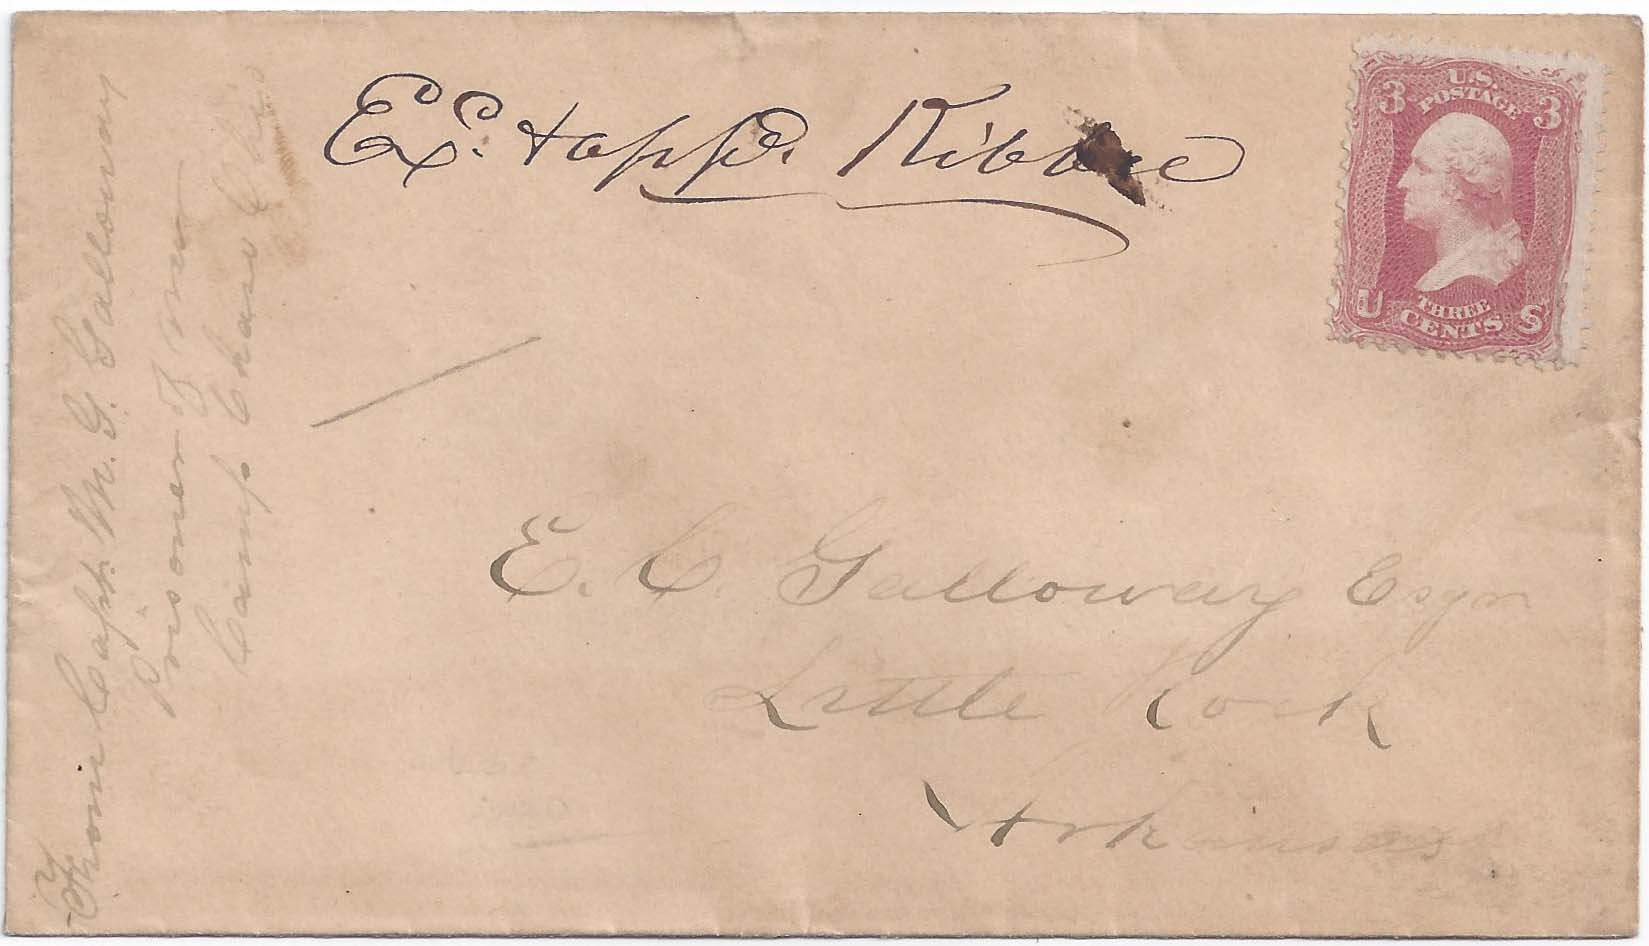 Ex. & appd. Kibbee
U.S. POSTAGE
3 3
U THREE CENTS S
From Capt. M. G. Galloway
Prisoner of War
Camp Chase Ohio
E. C. Galloway Esqr
Little Rock
Arkansas